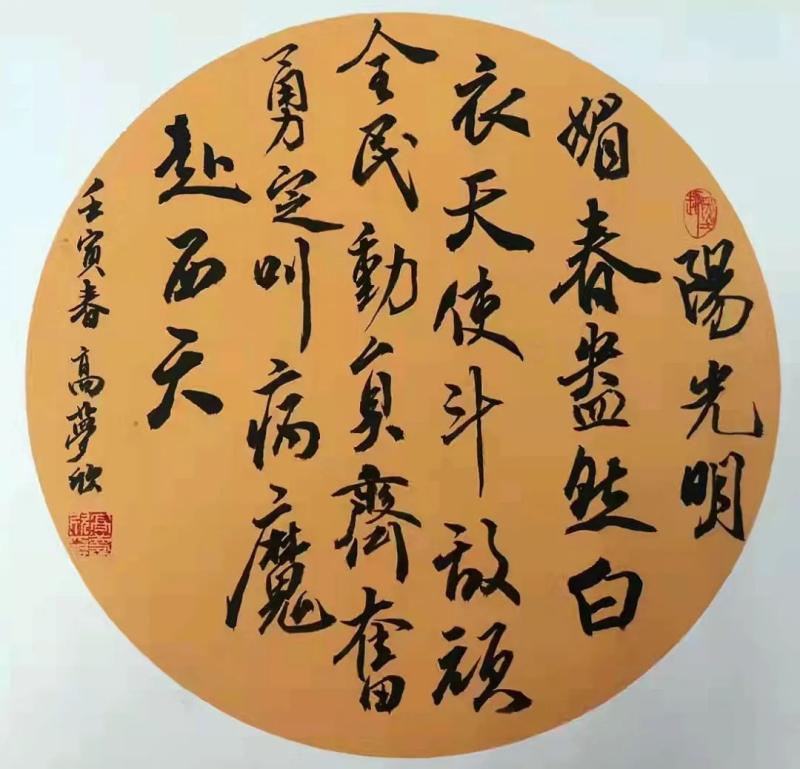 陽光明
媚春盎然白
衣天使斗敌顽
全民動員齊奮
勇定叫病魔
赴西天
壬寅春 高夢欣